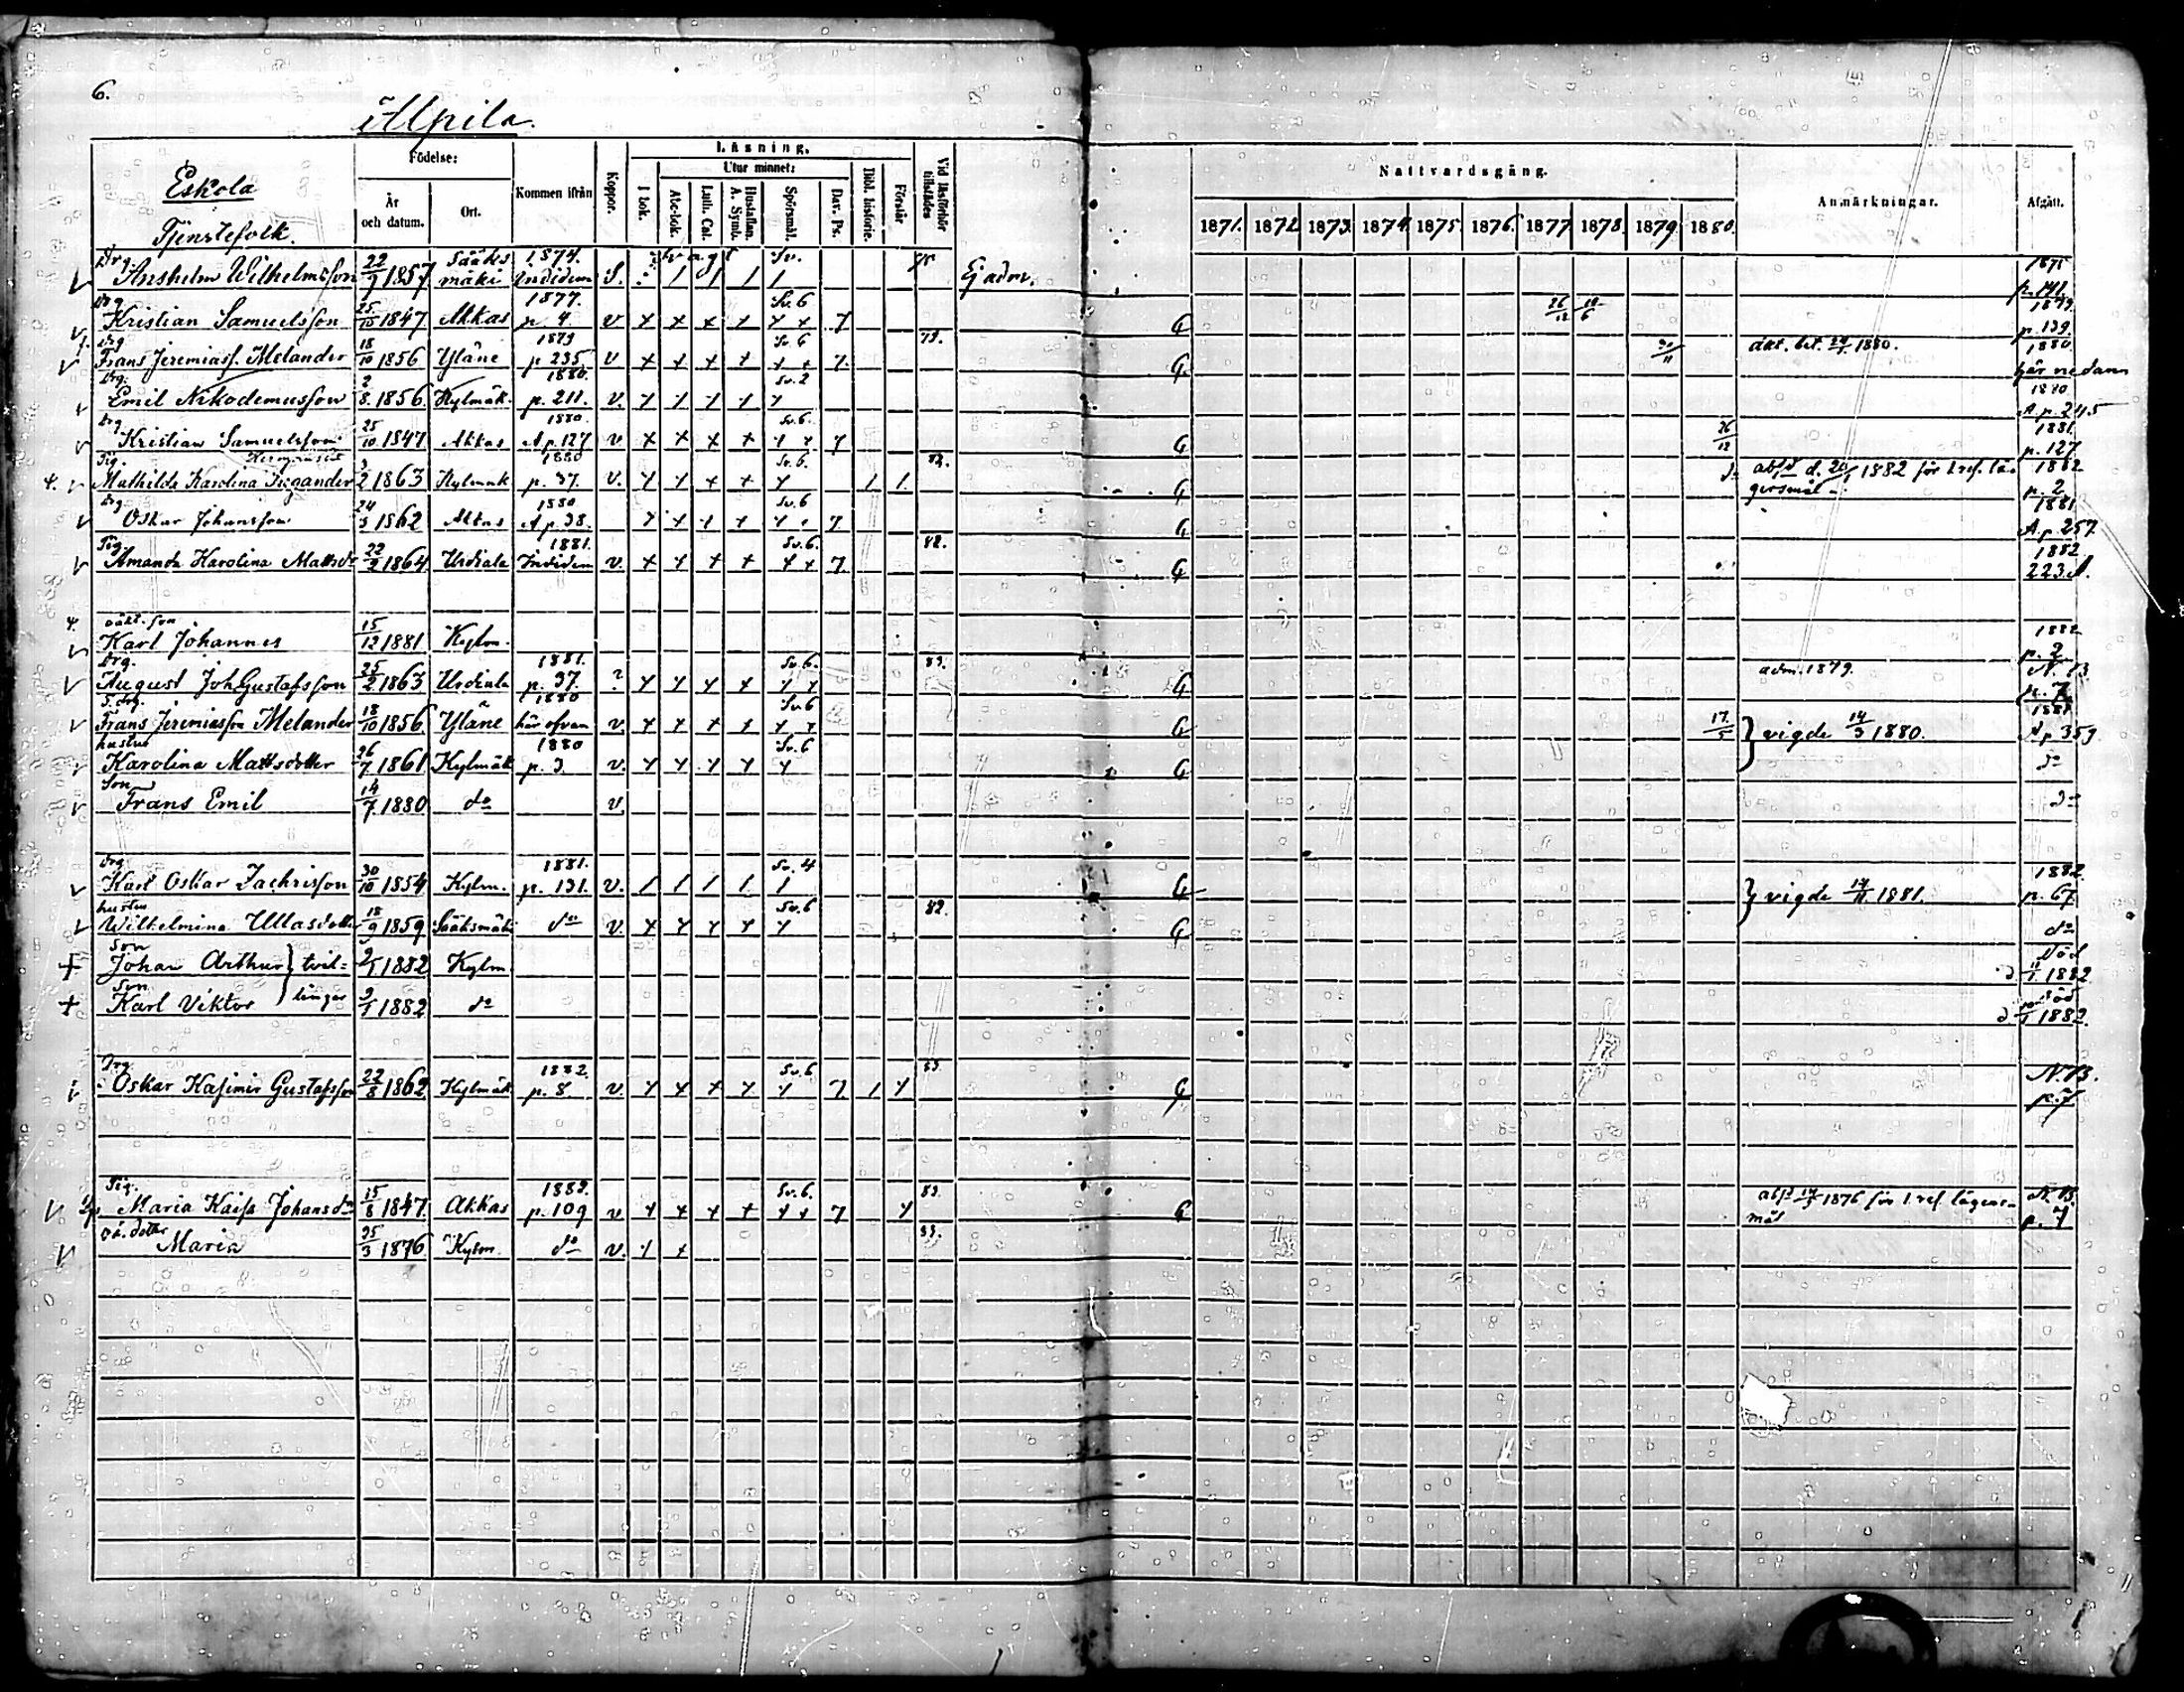 6.
Alpila.
Eskola
Tjenstefolk.
Födelse:
År och datum.
Ort.
Kommen ifrån
Koppor.
Läsning.
I bok.
Utur minnet:
Abc-bok.
Luth. Cat.
Hustaflan. A. Symb.
Spörsmål.
Dav. Ps.
Bibl. historie.
Förstår
Vid läsförhör tillstädes
Nattvardsgång.
1871. 1872 1873. 1874. 1875. 1876. 1877 1878. 1879 1880.
Anmärkningar.
Afgått.
Drg Anshelm Wilhelmsson 22/9 1857 Sääksmäki 1874. Indiden S. svagt Sv. Ej adm. 1875 p. 141
Drg Kristian Samuelsson 25/10 1847 Akkas 1877. p. 4. v Sv. 6 7 G 26/12 1879 p. 139.
Drg Frans Jeremiass. Melander 18/10 1856 Yläne 1879 p. 235 v Sv. 6 7. 79. G 1880. 1880 här nedann
Drg. Emil Nikodemusson 2/8 1856. Kylmäk. 1880. p. 211. v. Sv. 2 1880 A. p. 245
Drg Kristian Samuelsson 25/10 1847 Akkas 1880. A p. 127 v. Sv. 6. 7 G 26/12 1881. p. 127
Pig. Mathilda Karolina 1863 Kylmäk 1880 p. 37. v. Sv. 6. 82. G 1882 för 1. ref. lägersmål 1882 p. 2
Drg Oskar Johansson 24/3 1862 Akkas 1880 A p. 38. Sv. 6 7 G 1881 A p 257
Pig Amanda Karolina Mattsdr 22/2 1864 Urdiala 1881. Indiden v. Sv. 6. 7. 82. G 1882 223 A.
oäkt. son Karl Johannes 15/12 1881 Kylm. 1882 p. 2
Drg. August Joh Gustafsson 25/2 1863 Urdiala 1881. p. 37. ? Sv. 6. 83. G adm. 1879. N. B p. 7
Frans Jeremiasson Melander 18/10 1856. Yläne 1880 här ofvan v. Sv. 6 G 17/5 } vigde 14/3 1880. A p 359
hustru Karolina Mattsdotter 26/7 1861 Kylmäk 1880 p. 3. v. Sv. 6 G do
Son Frans Emil 14/7 1880 do v. do
Drg Karl Oskar Zachrisson 30/10 1854 Kylm. 1881. p. 131. v. Sv. 4 G } vigde 1881. 1882. p. 67
hustru Wilhelmina Ullasdotter 18/9 1859 Sääksmäki do v. Sv. 6 82. G do
Son Johan Arthur } tvil= 2/1 1882 Kylm Död d. 1882
Son Karl Viktor lingar 2/1 1882 do Död d. 1882.
Drg Oskar Kasimir Gustafsson 22/8 1862 Kylmäk 1882. p. 8. v. Sv. 6 7 83 G N. B. p. 7
Pig. Maria Kaisa Johansdr 15/8 1847. Akkas 1882. p. 109 v Sv. 6. 7 83. G 1876 för 1. ref. lägersmål N. B. p. 7
oä. dotter Maria 25/3 1876 Kylm. do v 83.